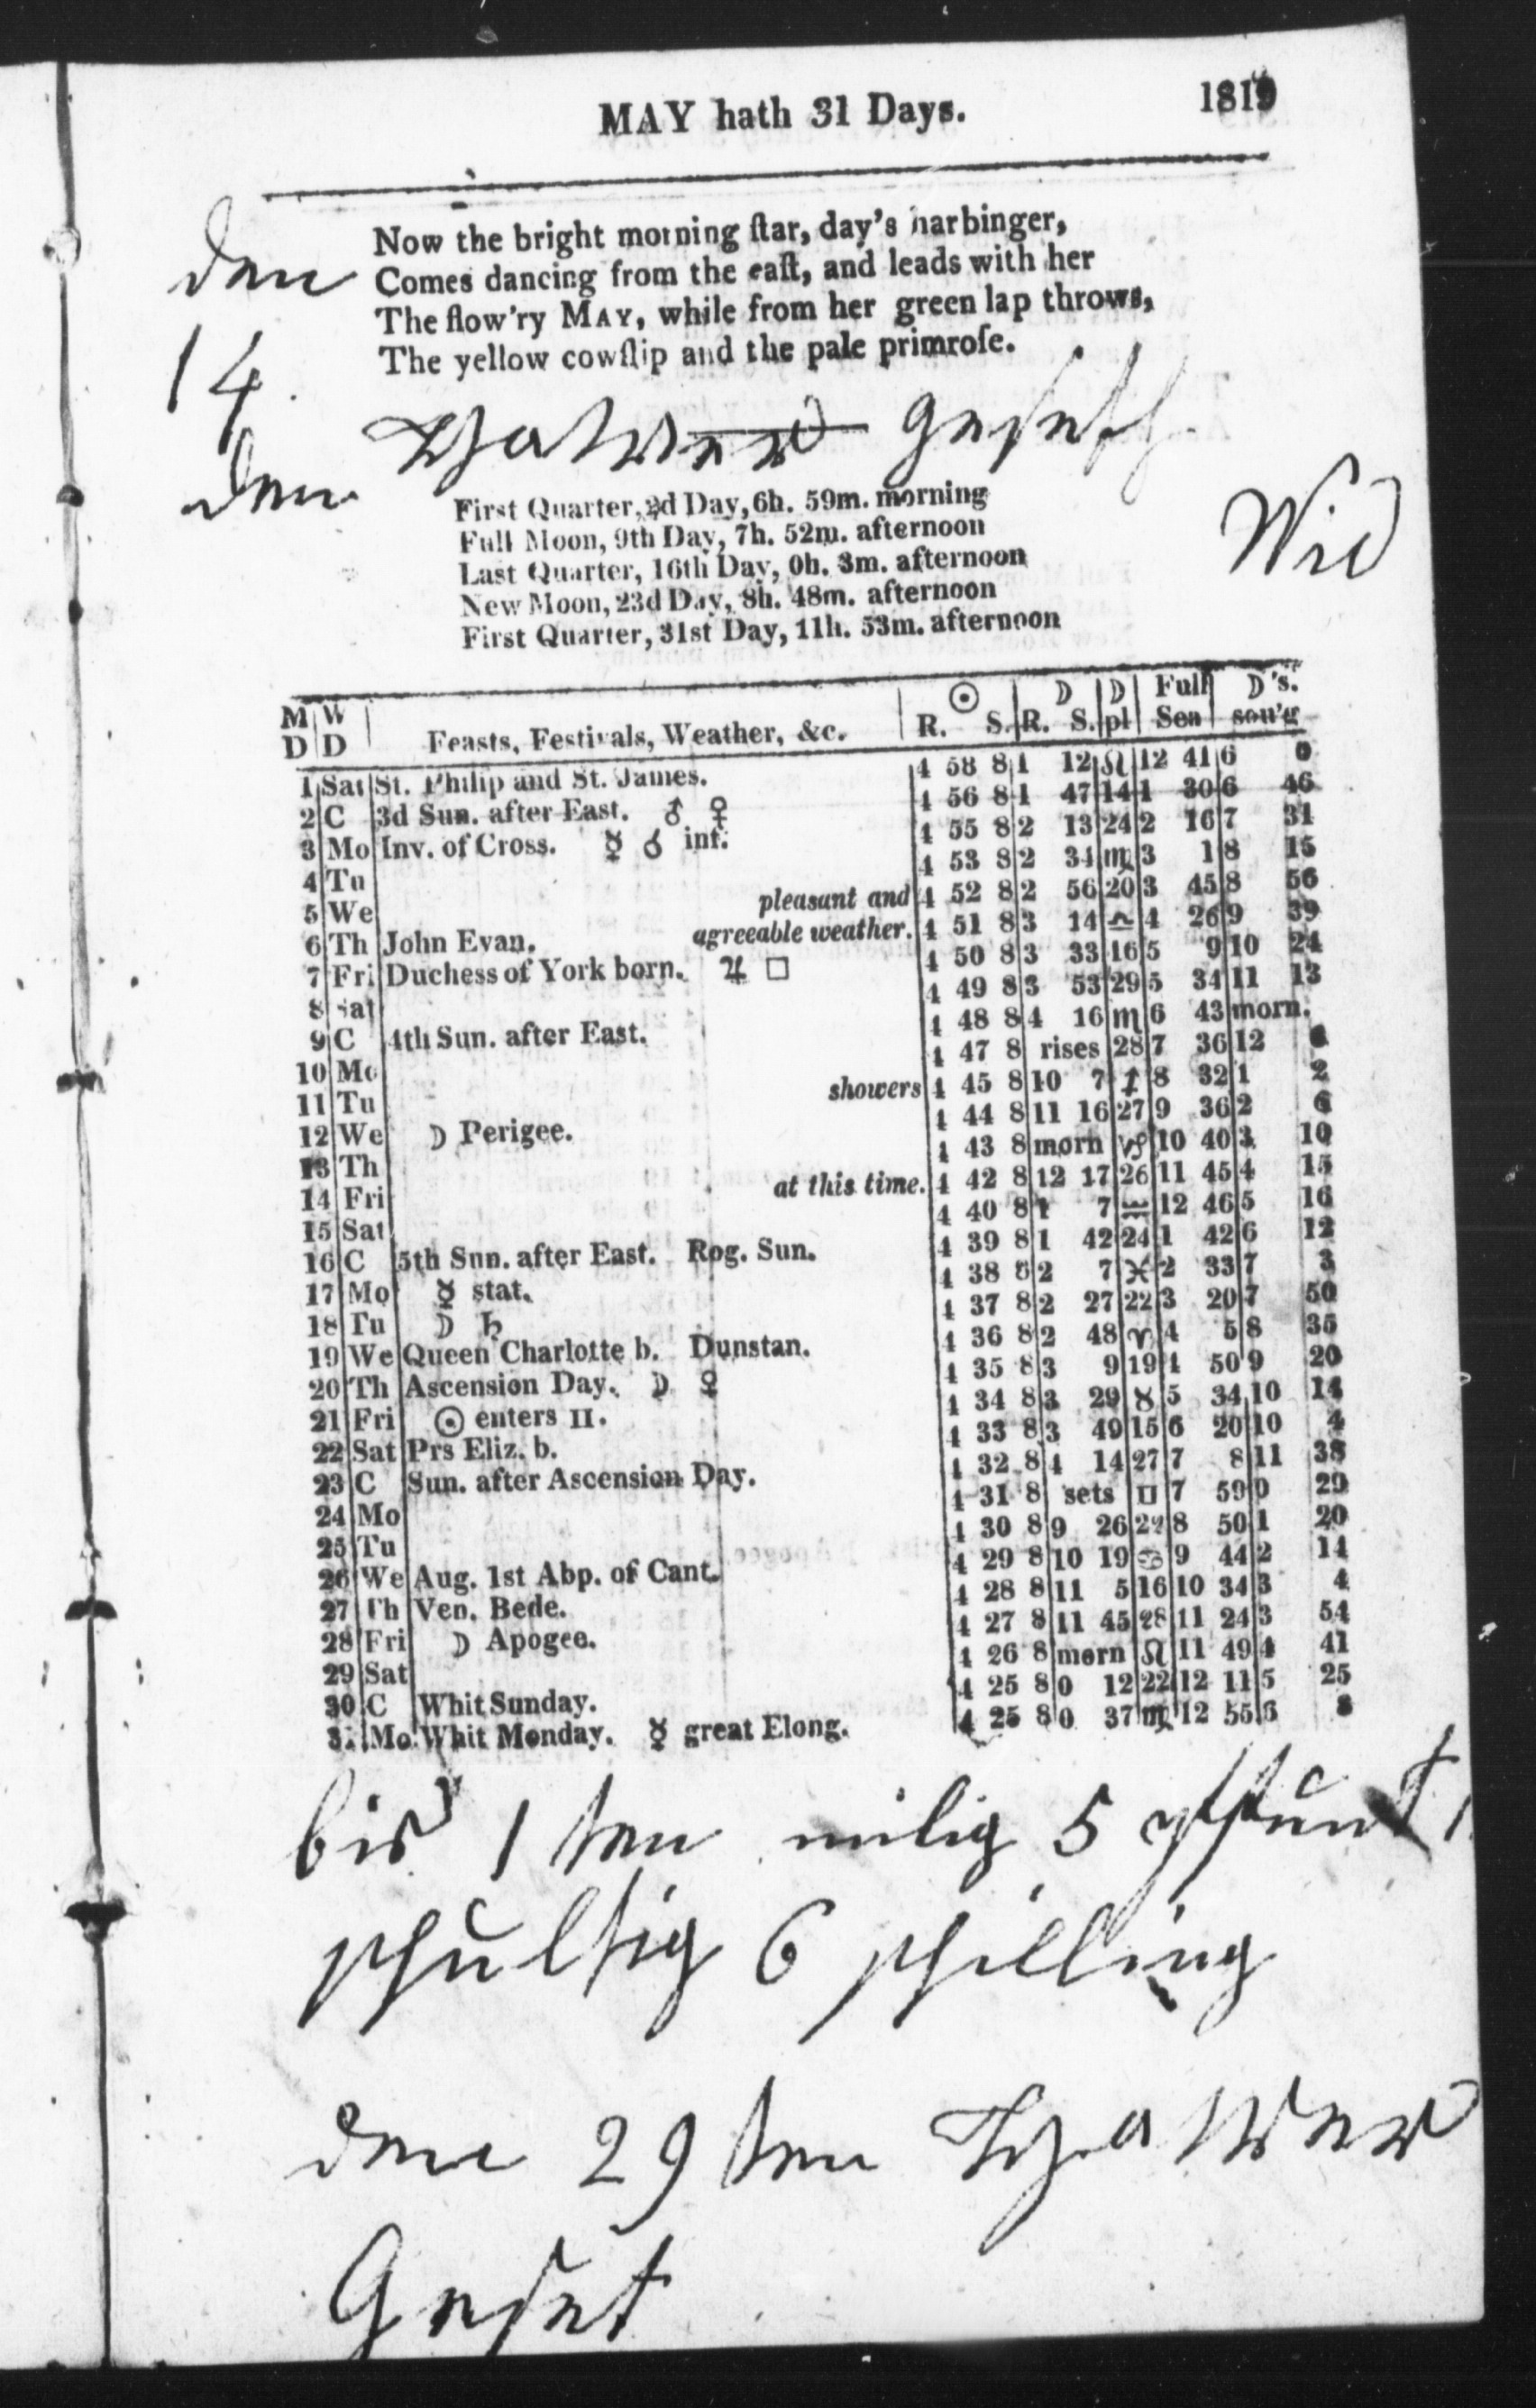 MAY hath 31 Days. 1819
Now the bright morning ſtar, day's harbinger,
den
Comes dancing from the eaſt, and leads with her
The flow'ry MAY, while from her green lap throws,
14
The yellow cowſlip and the pale primroſe.
den
First Quarter, 2d Day, 6h. 59m. morning
Wid
Full Moon, 9th Day, 7h. 52m. afternoon
Last Quarter, 16th Day, 0h. 3m. afternoon
New Moon, 23d Day, 8h. 48m. afternoon
First Quarter, 31st Day, 11h. 53m. afternoon
M W ☉ ☽ ☽ Full ☽'s.
D D Feasts, Festivals, Weather, &c. R. S. R. S. pl Sea sou'g
1 Sat St. Philip and St. James. 4 58 8 1 12 ♌ 12 41 6 0
2 C 3d Sun. after East. ♂ ♀ 4 56 8 1 47 14 1 30 6 46
3 Mo Inv. of Cross. ☿ ☌ inf. 4 55 8 2 13 24 2 16 7 31
4 Tu 4 53 8 2 34 ♍ 3 1 8 15
5 We pleasant and 4 52 8 2 56 20 3 45 8 56
6 Th John Evan. agreeable weather. 4 51 8 3 14 ♎ 4 26 9 39
7 Fri Duchess of York born. ♃ □ 4 50 8 3 33 16 5 9 10 24
8 Sat 4 49 8 3 53 29 5 34 11 13
9 C 4th Sun. after East. 4 48 8 4 16 ♏ 6 43 morn.
10 Mo 4 47 8 rises 28 7 36 12
11 Tu showers 4 45 8 10 7 ♐ 8 32 1 2
12 We ☽ Perigee. 4 44 8 11 16 27 9 36 2 6
13 Th 4 43 8 morn ♑ 10 40 3 10
14 Fri at this time. 4 42 8 12 17 26 11 45 4 15
15 Sat 4 40 8 1 7 ♒ 12 46 5 16
16 C 5th Sun. after East. Rog. Sun. 4 39 8 1 42 24 1 42 6 12
17 Mo ☿ stat. 4 38 8 2 7 ♓ 2 33 7 3
18 Tu ☽ ♄ 4 37 8 2 27 22 3 20 7 50
19 We Queen Charlotte b. Dunstan. 4 36 8 2 48 ♈ 4 5 8 35
20 Th Ascension Day. ☽ ♀ 4 35 8 3 9 19 4 50 9 20
21 Fri ☉ enters II. 4 34 8 3 29 ♉ 5 34 10 14
22 Sat Prs Eliz. b. 4 33 8 3 49 15 6 20 10 4
23 C Sun. after Ascension Day. 4 32 8 4 14 27 7 8 11 38
24 Mo 4 31 8 sets ♊ 7 59 0 29
25 Tu 4 30 8 9 26 22 8 50 1 20
26 We Aug. 1st Abp. of Cant. 4 29 8 10 19 ♋ 9 44 2 14
27 Th Ven. Bede. 4 28 8 11 5 16 10 34 3 4
28 Fri ☽ Apogee. 4 27 8 11 45 28 11 24 3 54
29 Sat 4 26 8 morn ♌ 11 49 4 41
30 C Whit Sunday. 4 25 8 0 12 22 12 11 5 25
31 Mo Whit Monday. ☿ great Elong. 4 25 8 0 37 ♍ 12 55 6 8
bis 1 ten milig 5
schultig 6 schilling
den 29 ten
Geset